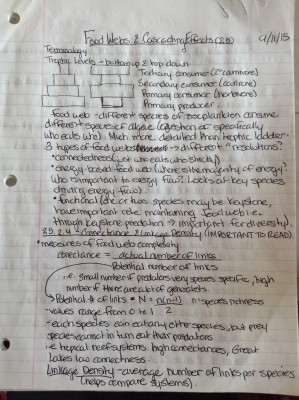 Food Webs & Cascading Effects (25) 9/11/15
Terminology
Trophic Levels → bottom up & top down
Tertiary consumer (2° carnivore)
Secondary consumer (carnivore)
Primary consumer (herbivore)
Primary producer
food web - different species of zooplankton consume
different species of algae (question of specifically
who eats who). Much more detailed than trophic ladder -
3 types of food webs → different "resolutions"
• connectedness (of who eats who strictly)
• energy based food web (where is the majority of energy?
who is important to energy flow? Looks at key species
driving energy flow)
• functional (one or two species may be keystone,
have important role maintaining food web i.e.
through keystone predation → important for diversity).
25.2.4 - Connectance & Linkage Density (IMPORTANT TO READ)
• measures of food web complexity
conectance = actual number of links
Potential number of links
i.e. small number if predators very species specific, high
number if there are a lot of generalists
→ Potential # of links * N = n(n-1) n = species richness
2
- values range from 0 to 1
- each species can eat any other species, but prey
species cannot in turn eat their predators
i.e. tropical reef systems high connectance, Great
Lakes low connectness.
Linkage Density - average number of links per species
(helps compare systems).